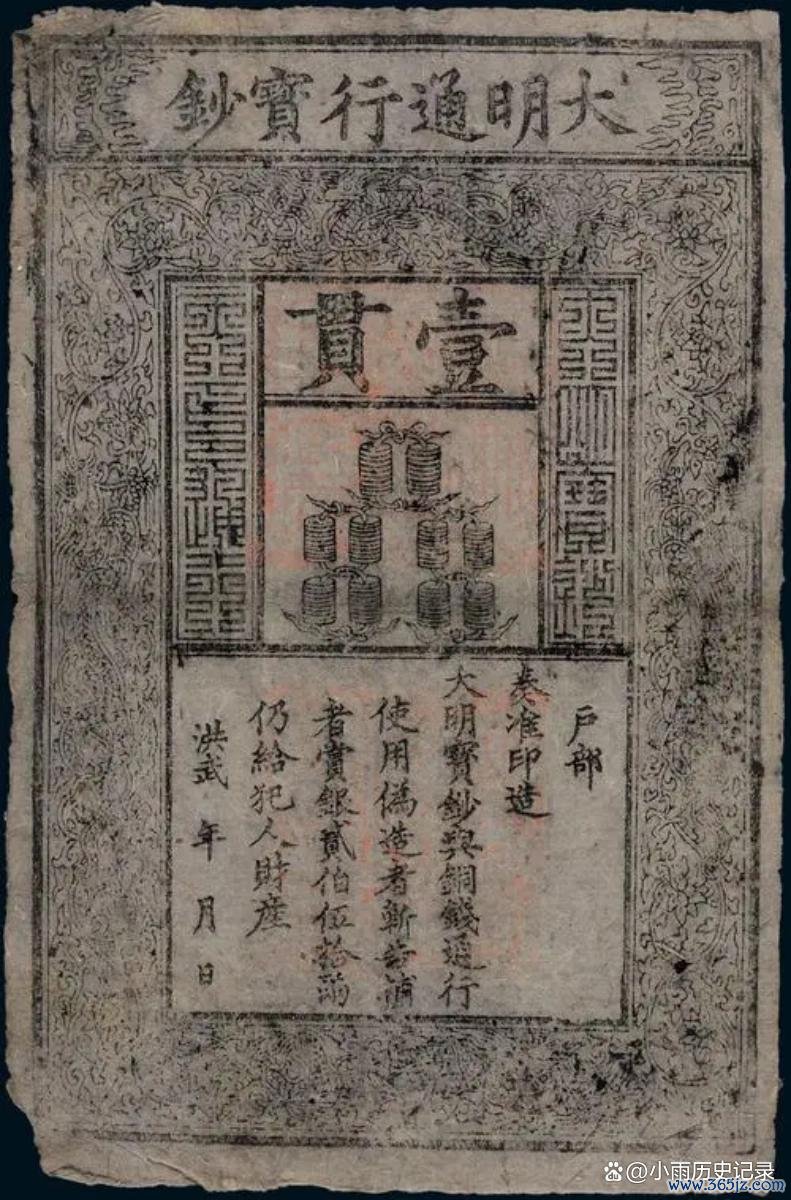 大明通行寶鈔
壹貫
戶部
奏准印造
大明寶鈔與銅錢通行
使用僞造者斬告捕
者賞銀貳伯伍拾兩
仍給犯人財産
洪武 年 月 日
@小雨历史记录
www.365jz.com